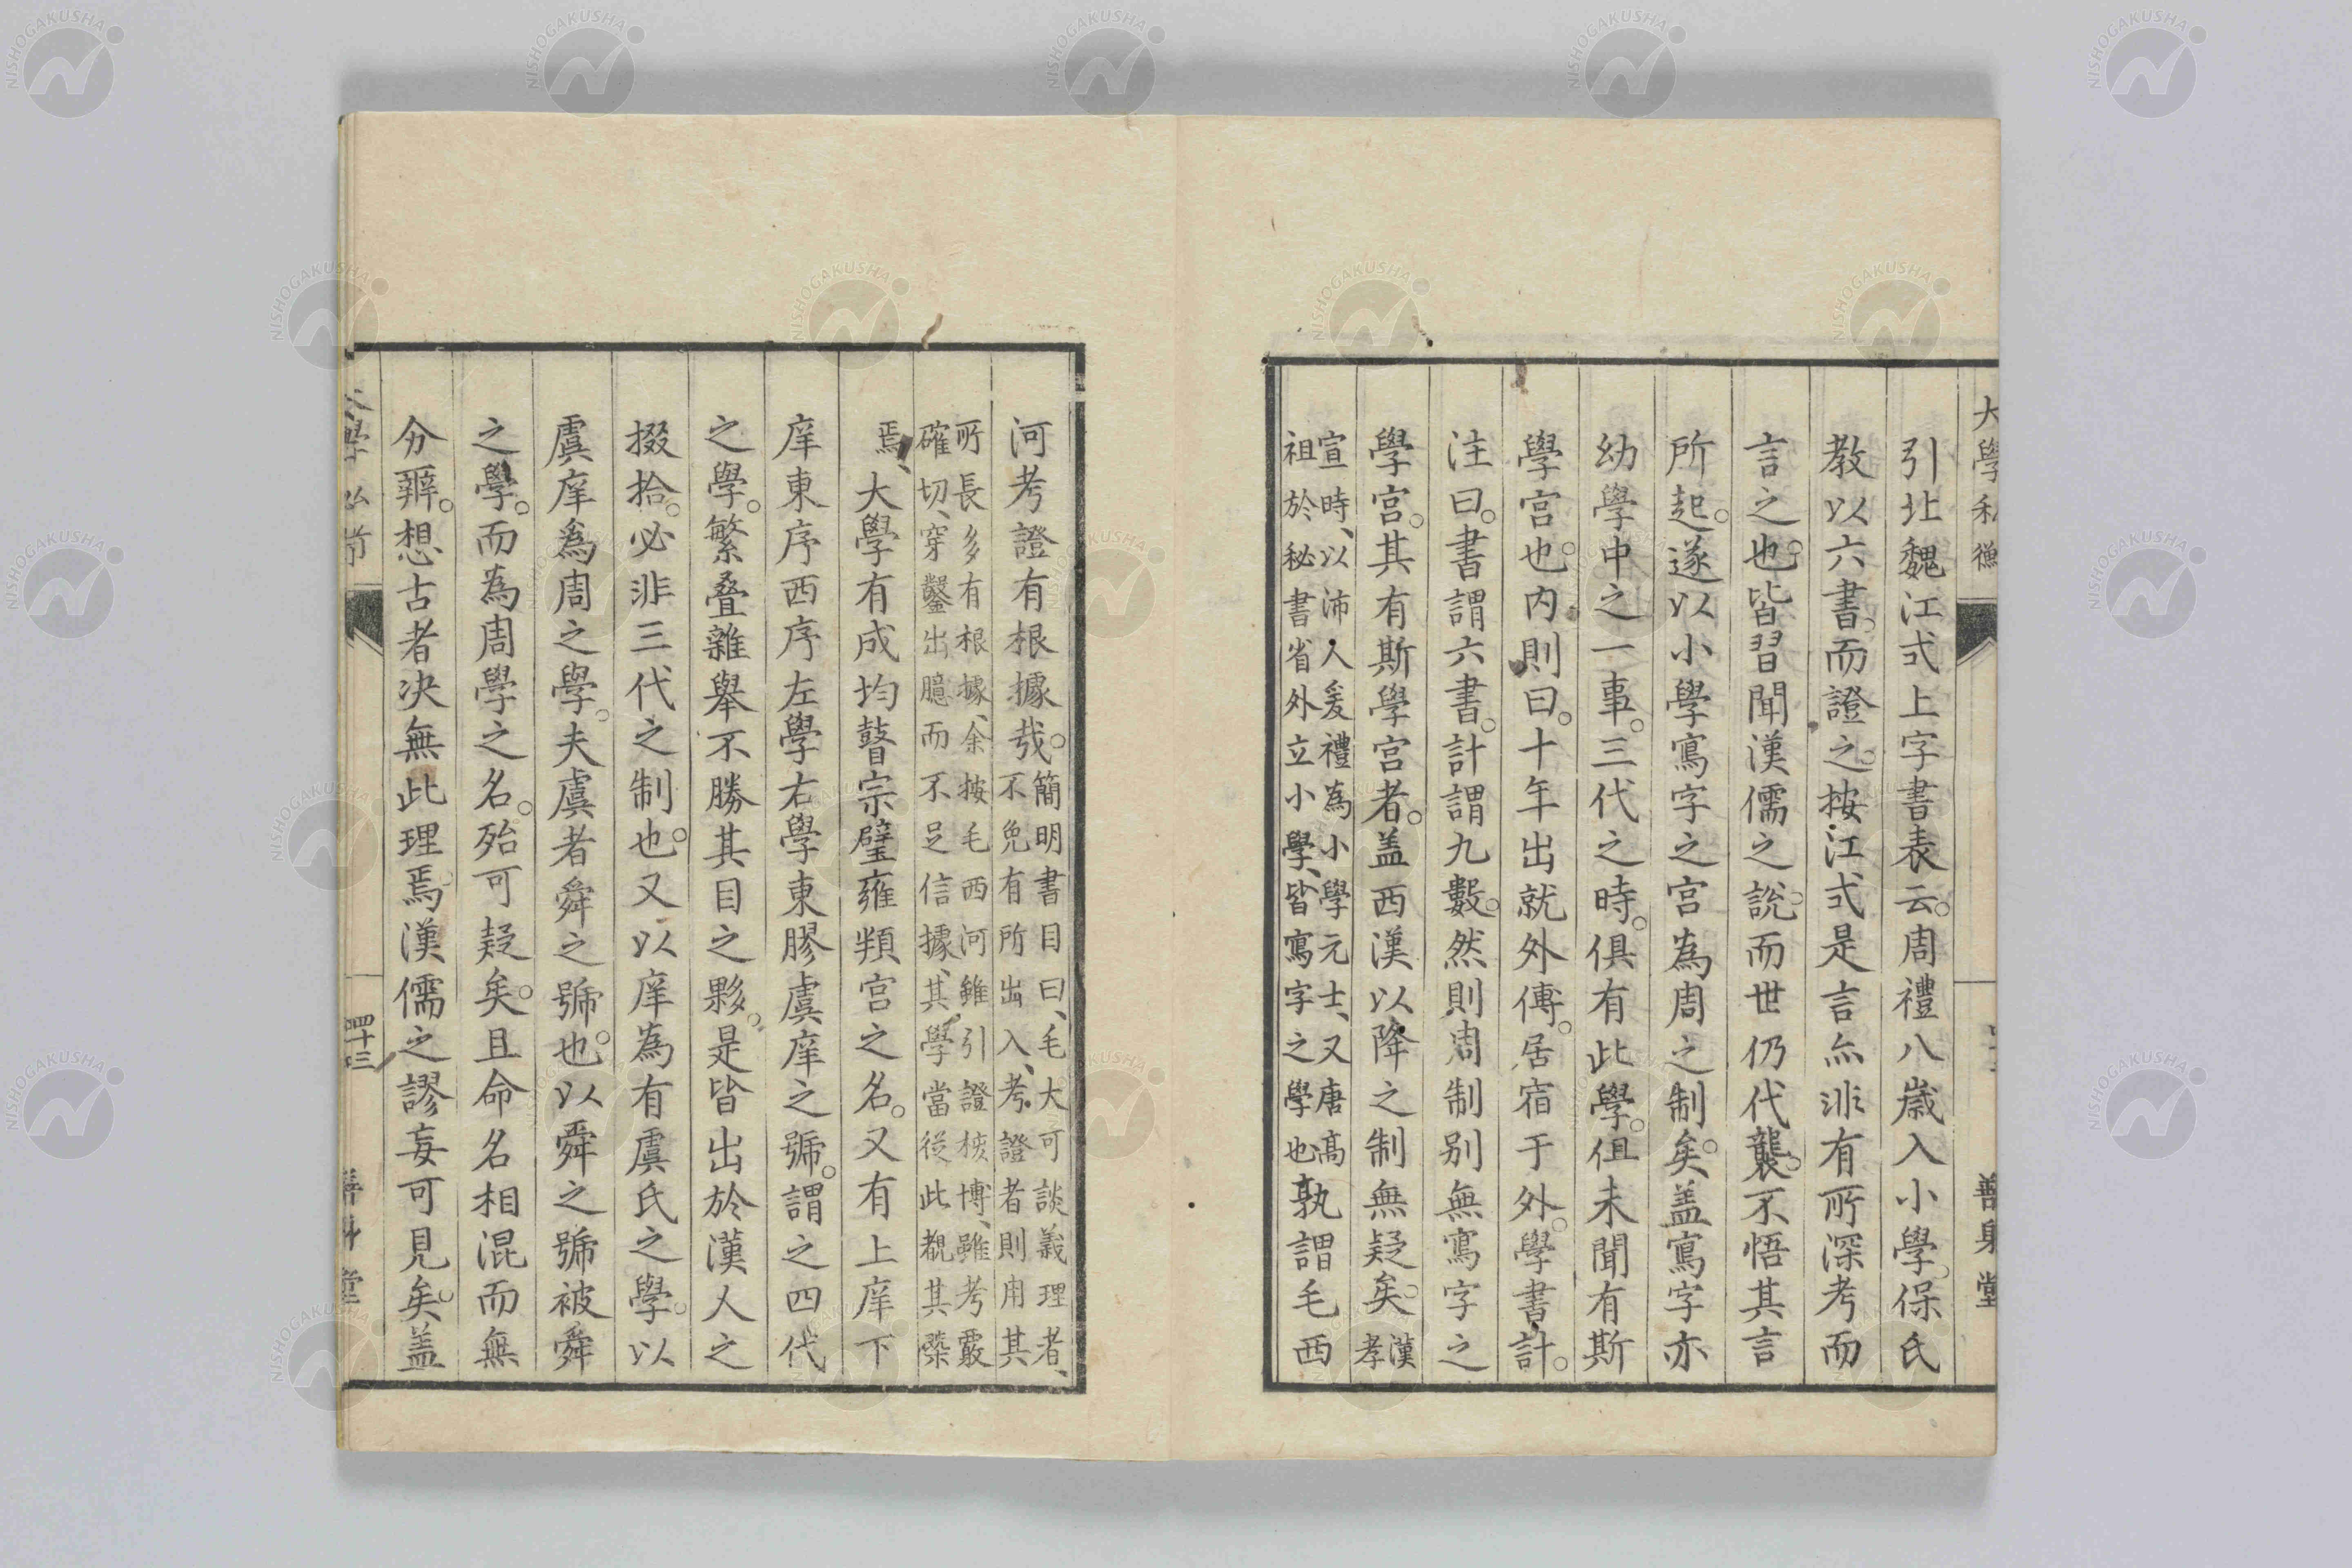 引北魏江式上字書表云。周禮八歲入小學。保氏
教以六書。而證之。按江式是言亦非有所深考而
言之也。皆習聞漢儒之說。而世仍代襲。不悟其言
所起。遂以小學寫字之宮為周之制矣。盖寫字亦
幼學中之一事。三代之時。俱有此學。但未聞有斯
學宮也。內則曰。十年出就外傅。居宿于外。學書計。
注曰。書謂六書。計謂九數。然則周制別無寫字之
學宮。其有斯學宮者。盖西漢以降之制無疑矣。漢孝
宣時、以沛人爰禮為小學元士、又唐高
祖於秘書省外立小學、皆寫字之學也
孰謂毛西
河考證有根據哉。
簡明書目曰、毛大可談義理者、
不免有所出入、考證者則用其
所長多有根據、余按毛西河雖引證核博、雖考覈
確切、穿鑿出臆而不足信據、其學當從此觀其槩
焉、大學有成均瞽宗璧雍頖宮之名。又有上庠下
庠東序西序左學右學東膠虞庠之號。謂之四代
之學。繁疊雜舉不勝其目之夥。是皆出於漢人之
掇拾。必非三代之制也。又以庠為有虞氏之學。以
虞庠爲周之學。夫虞者舜之號也。以舜之號被舜
之學。而為周學之名。殆可疑矣。且命名相混而無
分辨。想古者决無此理焉漢儒之謬妄可見矣。盖
大學私衡
善身堂
四十三